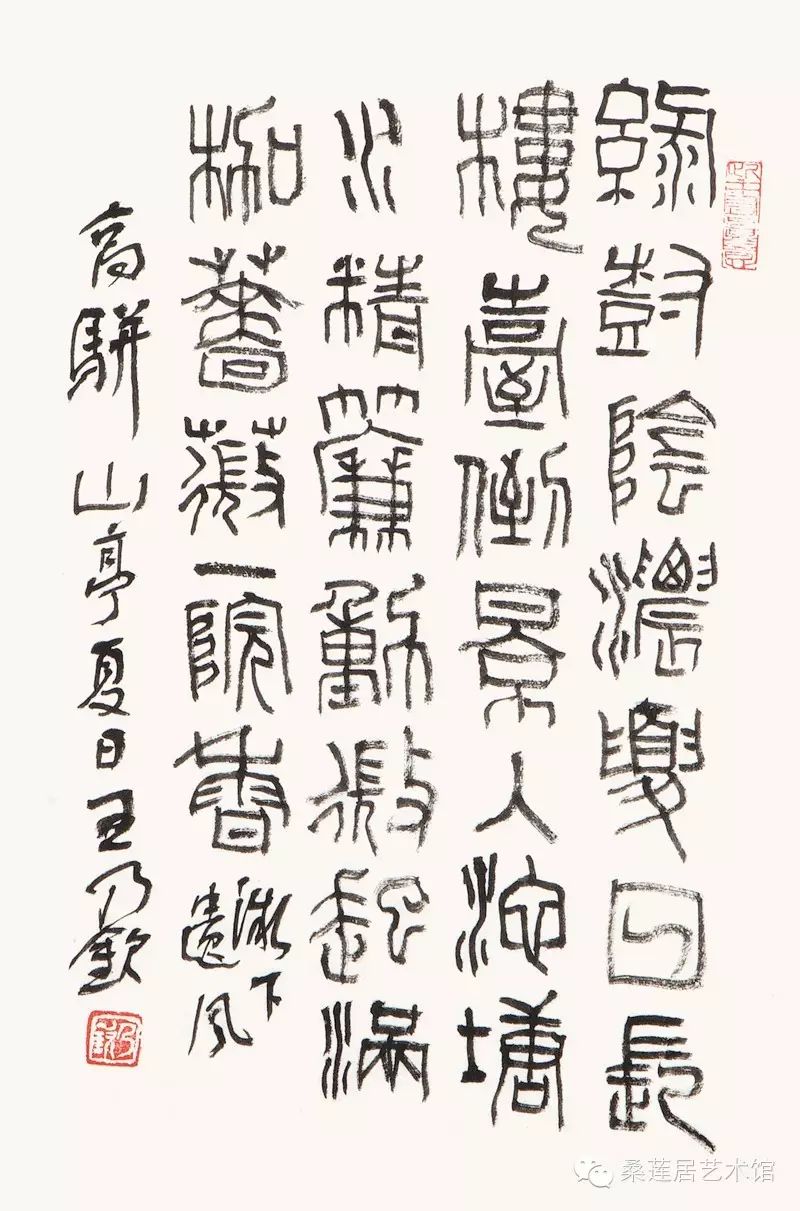 綠尌陰濃夏日長
樓臺倒景入池塘
水精簾動微起滿
枷薔薇一院香
微下
遺風
高駢山亭夏日王乃欽
桑莲居艺术馆